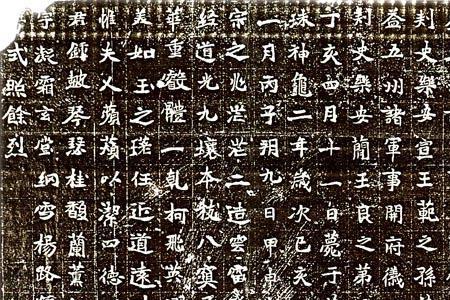 刾史樂安宣王範之孫
五州諸軍事開府儀
刾史樂安簡王良之第
丁亥四月十一日薨于
珠神龜二年歲次己亥
一月丙子朔九日甲申
宗之兆茫茫二造空
道光九壤本枝八冥
華重發體一乹柯飛英
美如玉之任近道遠
惟夫乂蘋以潔四德
君鍾敏琴瑟桂馥蘭薰
凝霜玄堂網雪楊路
式照餘烈